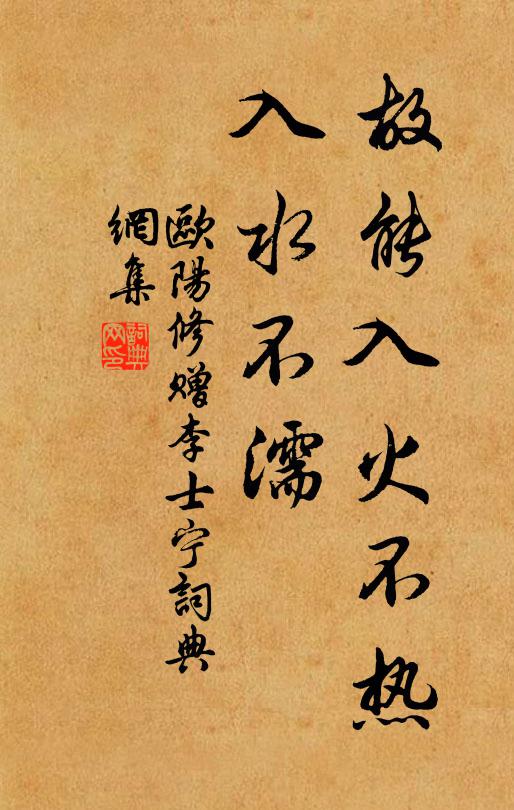 故能入火不热
入水不濡
歐陽修赠李士宁詞典
網集
詞典
网印